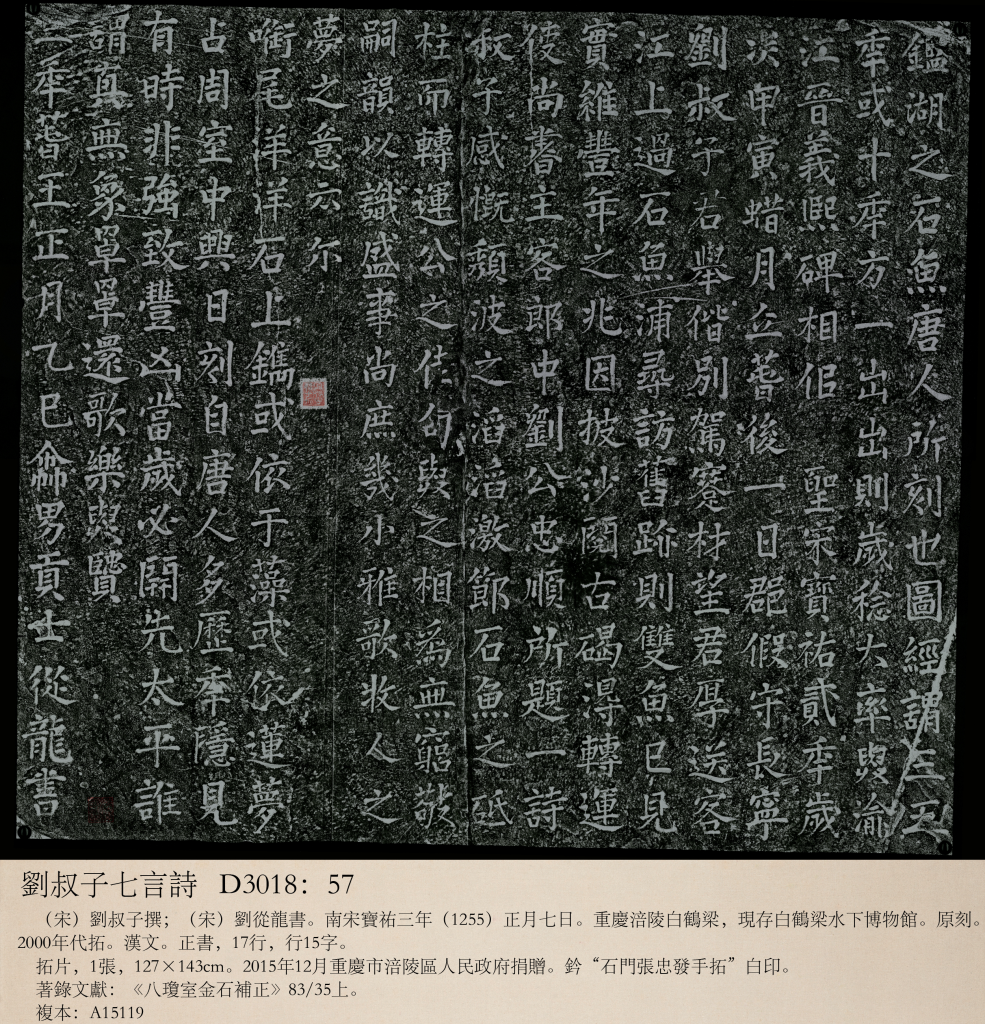 鑑湖之石魚唐人所刻也圖經謂三五
年或十年方一出出則歲稔大率與渝
江晉義熙碑相佀聖宋寶祐貳年歲
次甲寅蜡月立春後一日郡假守長寧
劉叔子君舉偕別駕蹇材望君厚送客
江上過石魚浦尋訪舊跡則雙魚已見
實維豐年之兆因披沙閱古碣得轉運
使尚書主客郎中劉公忠順所題一詩
叔子感慨頹波之滔滔激節石魚之砥
柱而轉運公之佳句與之相為無窮敬
嗣韻以識盛事尚庶幾小雅歌牧人之
夢之意云尔
銜尾洋洋石上鐫或依于藻或依蓮夢
占周室中興日刻自唐人多歷年隱見
有時非強致豐凶當歲必開先太平誰
謂真無象罩罩還歌樂與賢
三年春王正月乙巳命男貢士從龍書
劉叔子七言詩 D3018：57
（宋）劉叔子撰；（宋）劉從龍書。南宋寶祐三年（1255）正月七日。重慶涪陵白鶴梁，現存白鶴梁水下博物館。原刻。
2000年代拓。漢文。正書，17行，行15字。
拓片，1張，127×143cm。2015年12月重慶市涪陵區人民政府捐贈。鈐“石門張忠發手拓”白印。
著錄文獻：《八瓊室金石補正》83/35上。
複本：A15119